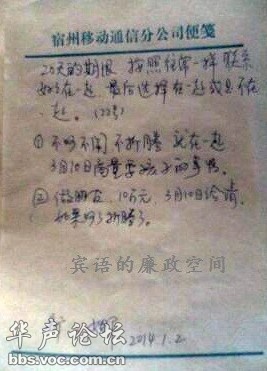 宿州移动通信分公司便笺
20天的期限 按照往常一样 联系
好好在一起 最后选择在一起或是不在
一起。(22号)
① 不吵不闹 不折腾 就在一起
3月10日商量要孩子的事情。
② 做朋友,10万元,3月10日给清,
如果吵了折腾了。
宾语的廉政空间
2014.1.2
华声论坛
bbs.voc.com.cn